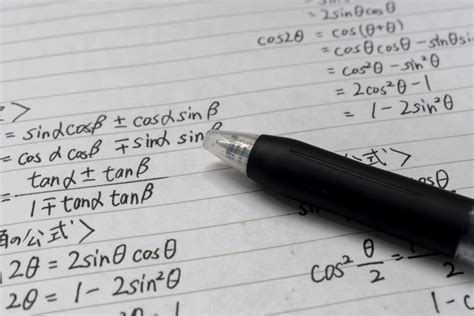 = 2sinθcosθ
cos2θ = cos(θ+θ)
= cosθcosθ - sinθsin
= cos²θ - sin²θ
= 2cos²θ - 1
= 1 - 2sin²θ
>
= sinαcosβ ± cosαsinβ
= cosαcosβ ∓ sinα sinβ
= tanα ± tanβ
1 ∓ tanα tanβ
の公式>
2θ = 2sinθcosθ
2θ = 1 - 2sin²θ
公式>
cos² θ/2 = 1
1 - c